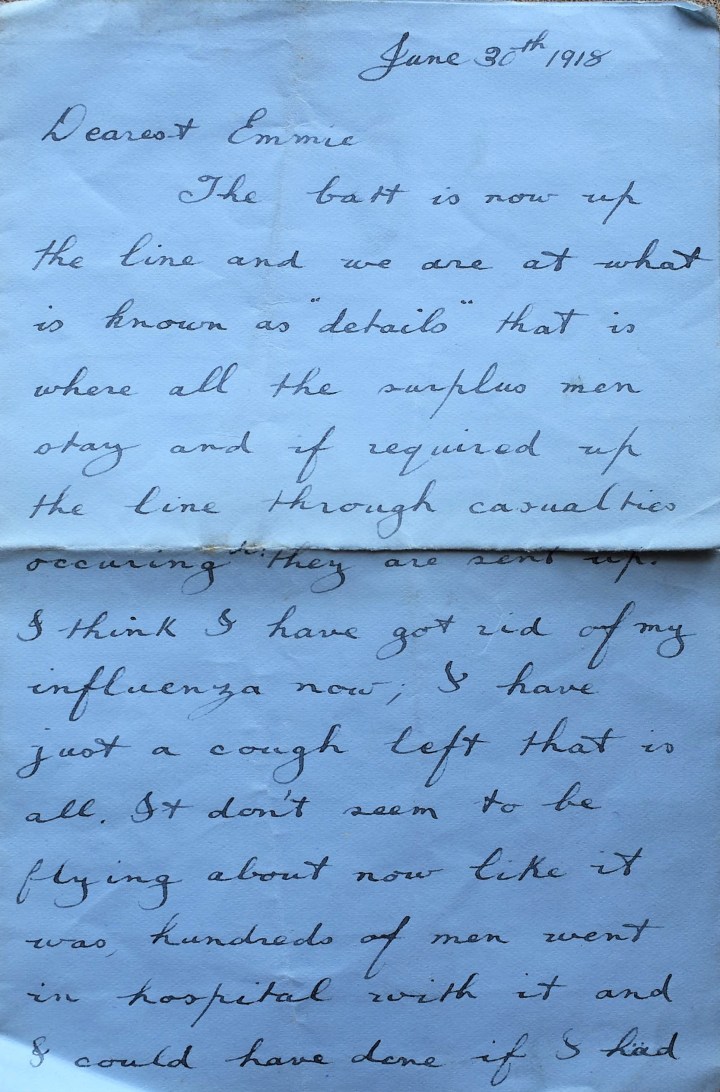 June 30th 1918
Dearest Emmie
The batt is now up
the line and we are at what
is known as "details" that is
where all the surplus men
stay and if required up
the line through casualties
occuring they are sent up.
I think I have got rid of my
influenza now; I have
just a cough left that is
all. It don't seem to be
flying about now like it
was, hundreds of men went
in hospital with it and
I could have done if I had